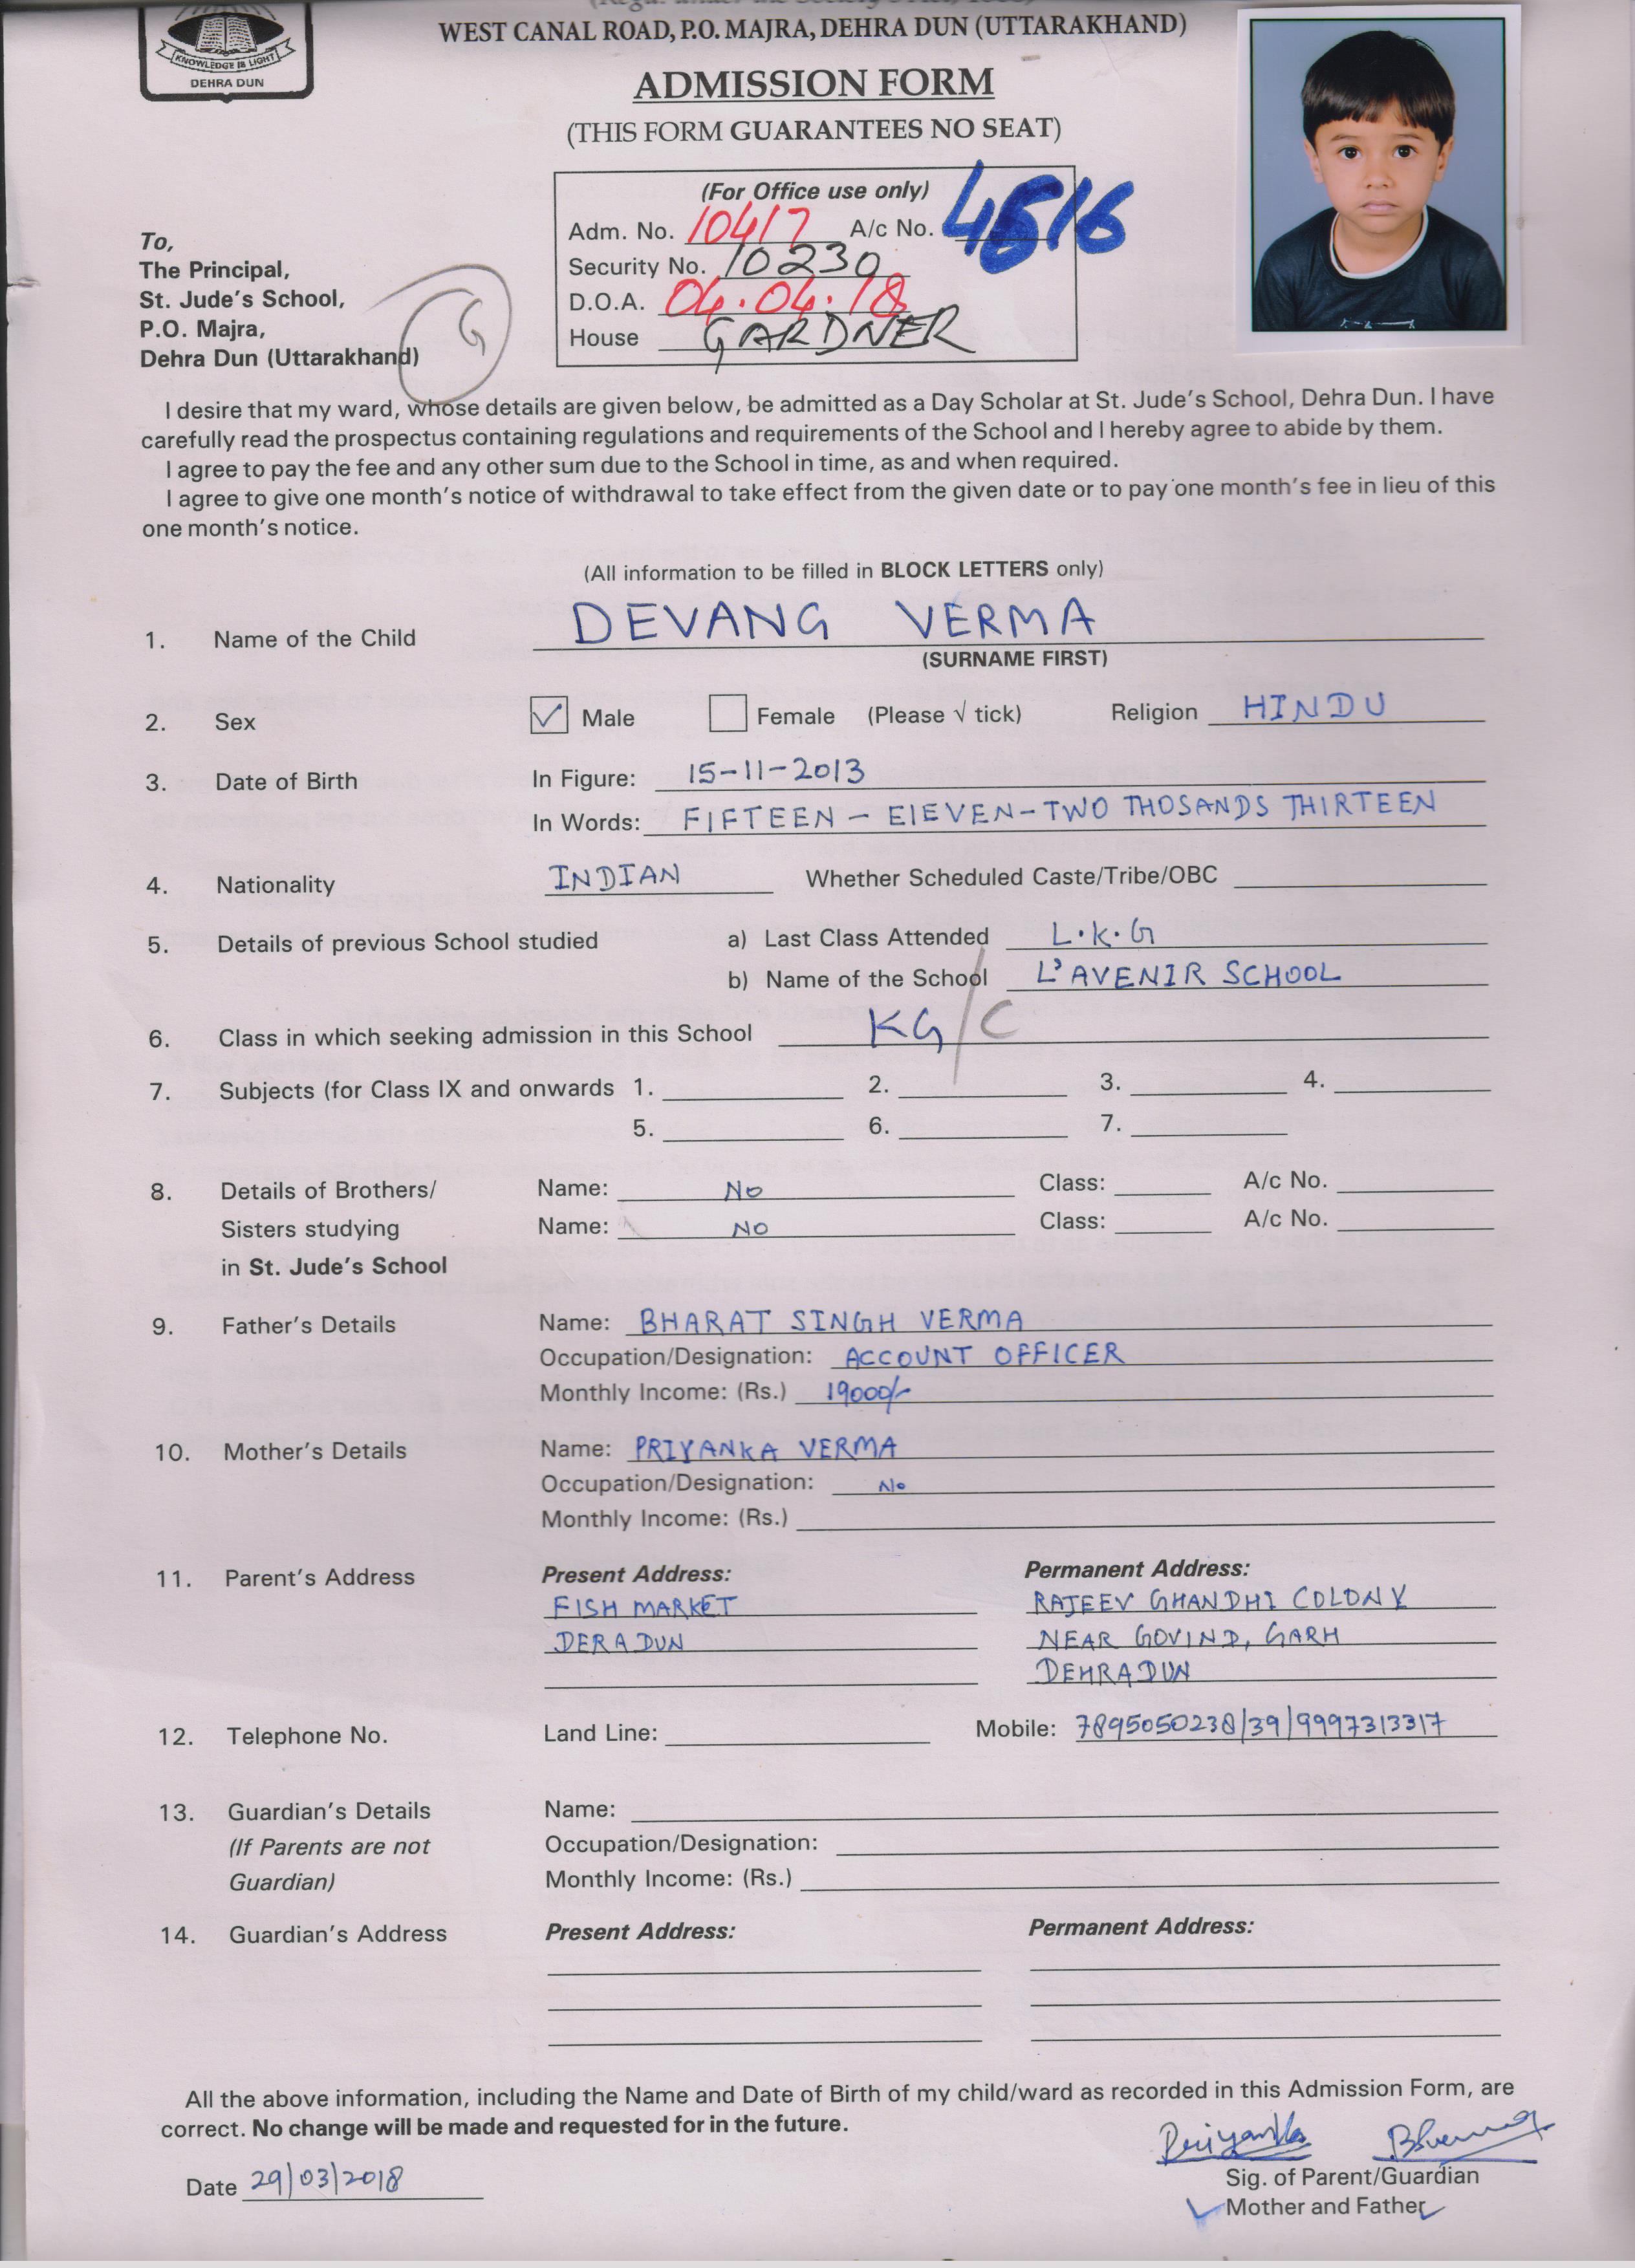 WEST CANAL ROAD, P.O. MAJRA, DEHRA DUN (UTTARAKHAND)
KNOWLEDGE IS LIGHT
DEHRA DUN
ADMISSION FORM
(THIS FORM GUARANTEES NO SEAT)
(For Office use only)
Adm. No. 10417 A/c No. 4516
Security No. 10230
D.O.A. 04.04.18
House GARDNER
To,
The Principal,
St. Jude's School,
P.O. Majra,
Dehra Dun (Uttarakhand)
G
I desire that my ward, whose details are given below, be admitted as a Day Scholar at St. Jude's School, Dehra Dun. I have
carefully read the prospectus containing regulations and requirements of the School and I hereby agree to abide by them.
I agree to pay the fee and any other sum due to the School in time, as and when required.
I agree to give one month's notice of withdrawal to take effect from the given date or to pay one month's fee in lieu of this
one month's notice.
(All information to be filled in BLOCK LETTERS only)
1. Name of the Child DEVANG VERMA
(SURNAME FIRST)
2. Sex Male Female (Please √ tick) Religion HINDU
3. Date of Birth In Figure: 15-11-2013
In Words: FIFTEEN - ElEVEN-TWO THOSANDS THIRTEEN
4. Nationality INDIAN Whether Scheduled Caste/Tribe/OBC
5. Details of previous School studied a) Last Class Attended L.K.G
b) Name of the School L'AVENIR SCHOOL
6. Class in which seeking admission in this School KG/C
7. Subjects (for Class IX and onwards 1. 2. 3. 4.
5. 6. 7.
8. Details of Brothers/ Name: No Class: A/c No.
Sisters studying Name: NO Class: A/c No.
in St. Jude's School
9. Father's Details Name: BHARAT SINGH VERMA
Occupation/Designation: ACCOUNT OFFICER
Monthly Income: (Rs.) 19000/-
10. Mother's Details Name: PRIYANKA VERMA
Occupation/Designation: No
Monthly Income: (Rs.)
11. Parent's Address Present Address: Permanent Address:
FISH MARKET RAJEEV GHANDHI COLONY
DERADUN NEAR GOVIND, GARH
DEHRADUN
12. Telephone No. Land Line: Mobile: 7895050238/39/9997313317
13. Guardian's Details Name:
(If Parents are not Occupation/Designation:
Guardian) Monthly Income: (Rs.)
14. Guardian's Address Present Address: Permanent Address:
All the above information, including the Name and Date of Birth of my child/ward as recorded in this Admission Form, are
correct. No change will be made and requested for in the future.
Priyanka
Date 29/03/2018 Sig. of Parent/Guardian
Mother and Father